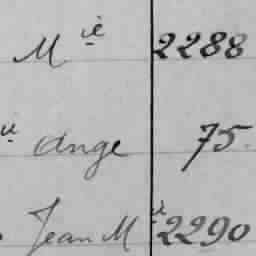 M ie 2288
ie Ange 75.
Jean M ie 2290